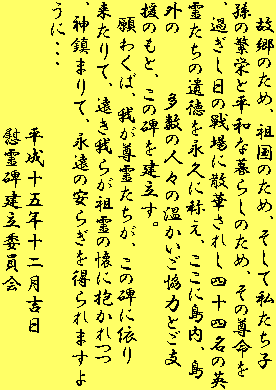 故郷のため、祖国のため、そして私たち子
孫の繁栄と平和な暮らしのため、その尊命を
、過ぎし日の戦場に散華されし四十四名の英
霊たちの遺徳を永久に称え、ここに島内、島
外の　　多数の人々の温かいご協力とご支
援のもと、この碑を建立す。
願わくば、我が尊霊たちが、この碑に依り
来たりて、遠き我らが祖霊の懐に抱かれつつ
、神鎮まりて、永遠の安らぎを得られますよ
うに・・・
平成十五年十二月吉日
慰霊碑建立委員会